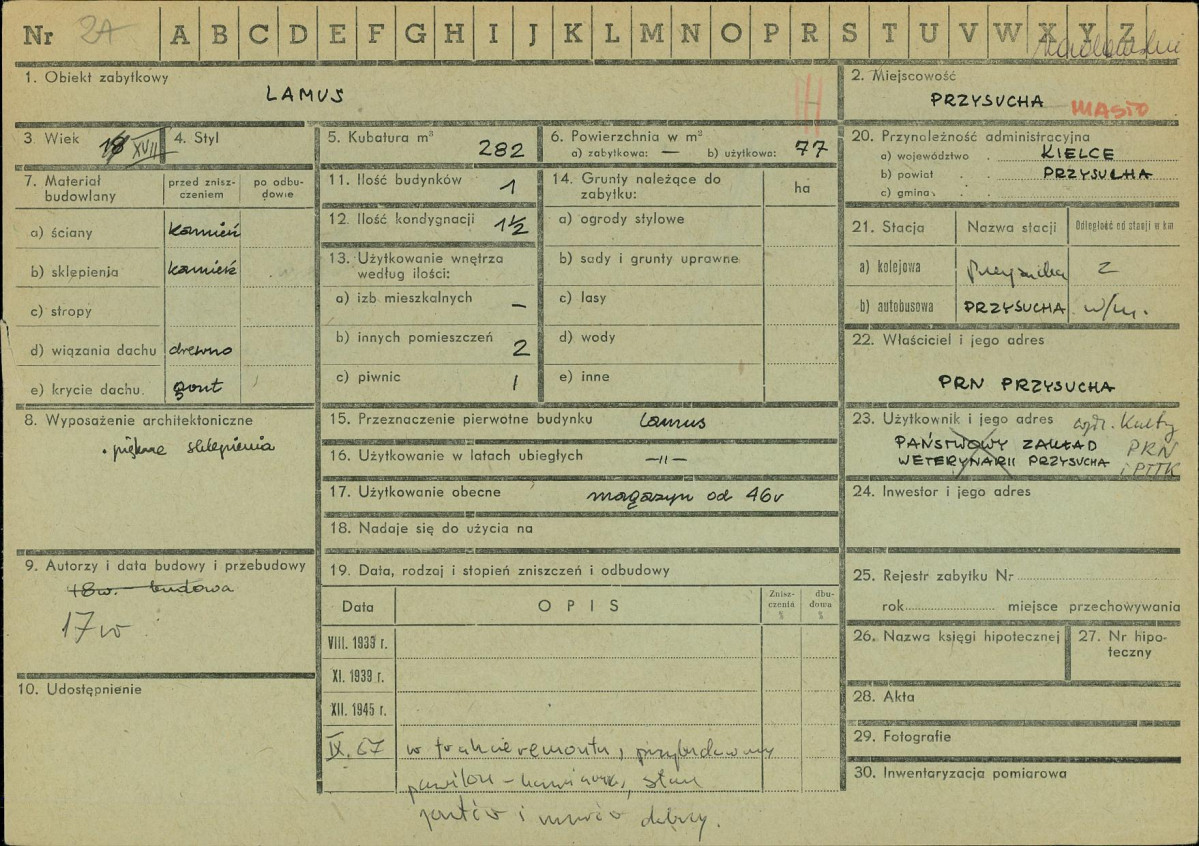 Nr 2A A B C D E F G H I J K L M N O P R S T U V W X Y Z
1. Obiekt zabytkowy
LAMUS
2. Miejscowość
PRZYSUCHA MIASTO
3. Wiek 18 XVII
4. Styl
5. Kubatura m³ 282
6. Powierzchnia w m²
a) zabytkowa: — b) użytkowa: 77
20. Przynależność administracyjna
a) województwo KIELCE
b) powiat PRZYSUCHA
c) gmina
7. Materiał budowlany
przed zniszczeniem
po odbudowie
a) ściany kamień
b) sklepienia kamień
c) stropy
d) wiązania dachu drewno
e) krycie dachu. gont
11. Ilość budynków 1
12. Ilość kondygnacji 1½
13. Użytkowanie wnętrza
według ilości:
a) izb mieszkalnych —
b) innych pomieszczeń 2
c) piwnic 1
14. Grunty należące do
zabytku: ha
a) ogrody stylowe
b) sady i grunty uprawne
c) lasy
d) wody
e) inne
21. Stacja Nazwa stacji Odległość od stacji w km
a) kolejowa Przysucha 2
b) autobusowa PRZYSUCHA w/m.
22. Właściciel i jego adres
PRN PRZYSUCHA
8. Wyposażenie architektoniczne
piękne sklepienia
15. Przeznaczenie pierwotne budynku lamus
16. Użytkowanie w latach ubiegłych —„—
17. Użytkowanie obecne magazyn od 46r
18. Nadaje się do użycia na
23. Użytkownik i jego adres wydz. Kultury
PAŃSTWOWY ZAKŁAD PRN
WETERYNARII PRZYSUCHA i PTTK
24. Inwestor i jego adres
9. Autorzy i data budowy i przebudowy
18w. budowa
17 w
10. Udostępnienie
19. Data, rodzaj i stopień zniszczeń i odbudowy
Data OPIS Zniszczenia % dbudowa %
VIII. 1939 r.
XI. 1939 r.
XII. 1945 r.
IX. 67 w trakcie remontu, przybudowany
pawilon - kawiarnia, stan
gontów i murów dobry.
25. Rejestr zabytku Nr
rok miejsce przechowywania
26. Nazwa księgi hipotecznej
27. Nr hipoteczny
28. Akta
29. Fotografie
30. Inwentaryzacja pomiarowa